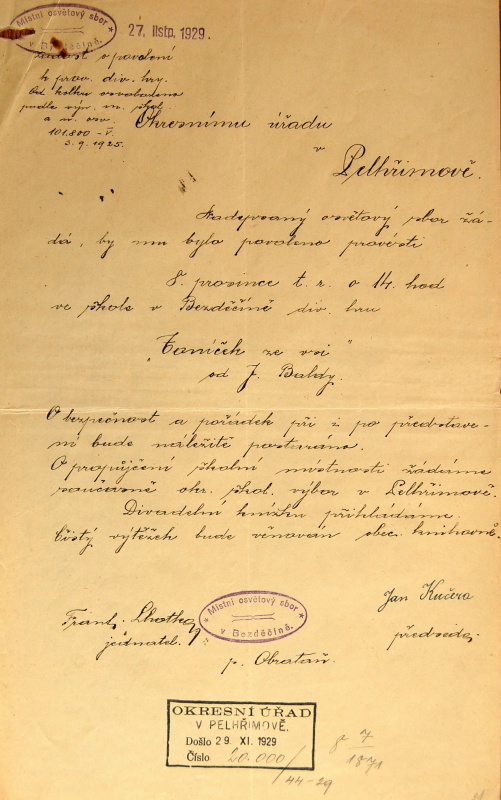 Místní osvětový sbor
v Bezděčíně.
27. listp. 1929.
žádost o povolení
k prov. div. hry.
Od kolku osvobozeno
podle výn. m. škol.
a n. osv.
101.800 - V.
3. 9. 1925.
Okresnímu úřadu
v
Pelhřimově.
Nadepsaný osvětový sbor žá-
dá, by mu bylo povoleno provésti
8. prosince t. r. o 14. hod
ve škole v Bezděčíně div. hru
"Toníček ze vsi"
od J. Baldy.
O bezpečnost a pořádek při i po představe-
ní bude náležitě postaráno.
O propůjčení školní místnosti žádáme
současně okr. škol. výbor v Pelhřimově.
Divadelní knížku přikládáme.
Čistý výtěžek bude věnován obec. knihovně.
Jan Kučera
předseda.
Frant. Lhotka
jednatel.
Místní osvětový sbor
v Bezděčíně.
p. Obrataň
OKRESNÍ ÚŘAD
V PELHŘIMOVĚ.
Došlo 29. XI. 1929
Číslo 20.000/
44-29
8 7
1871